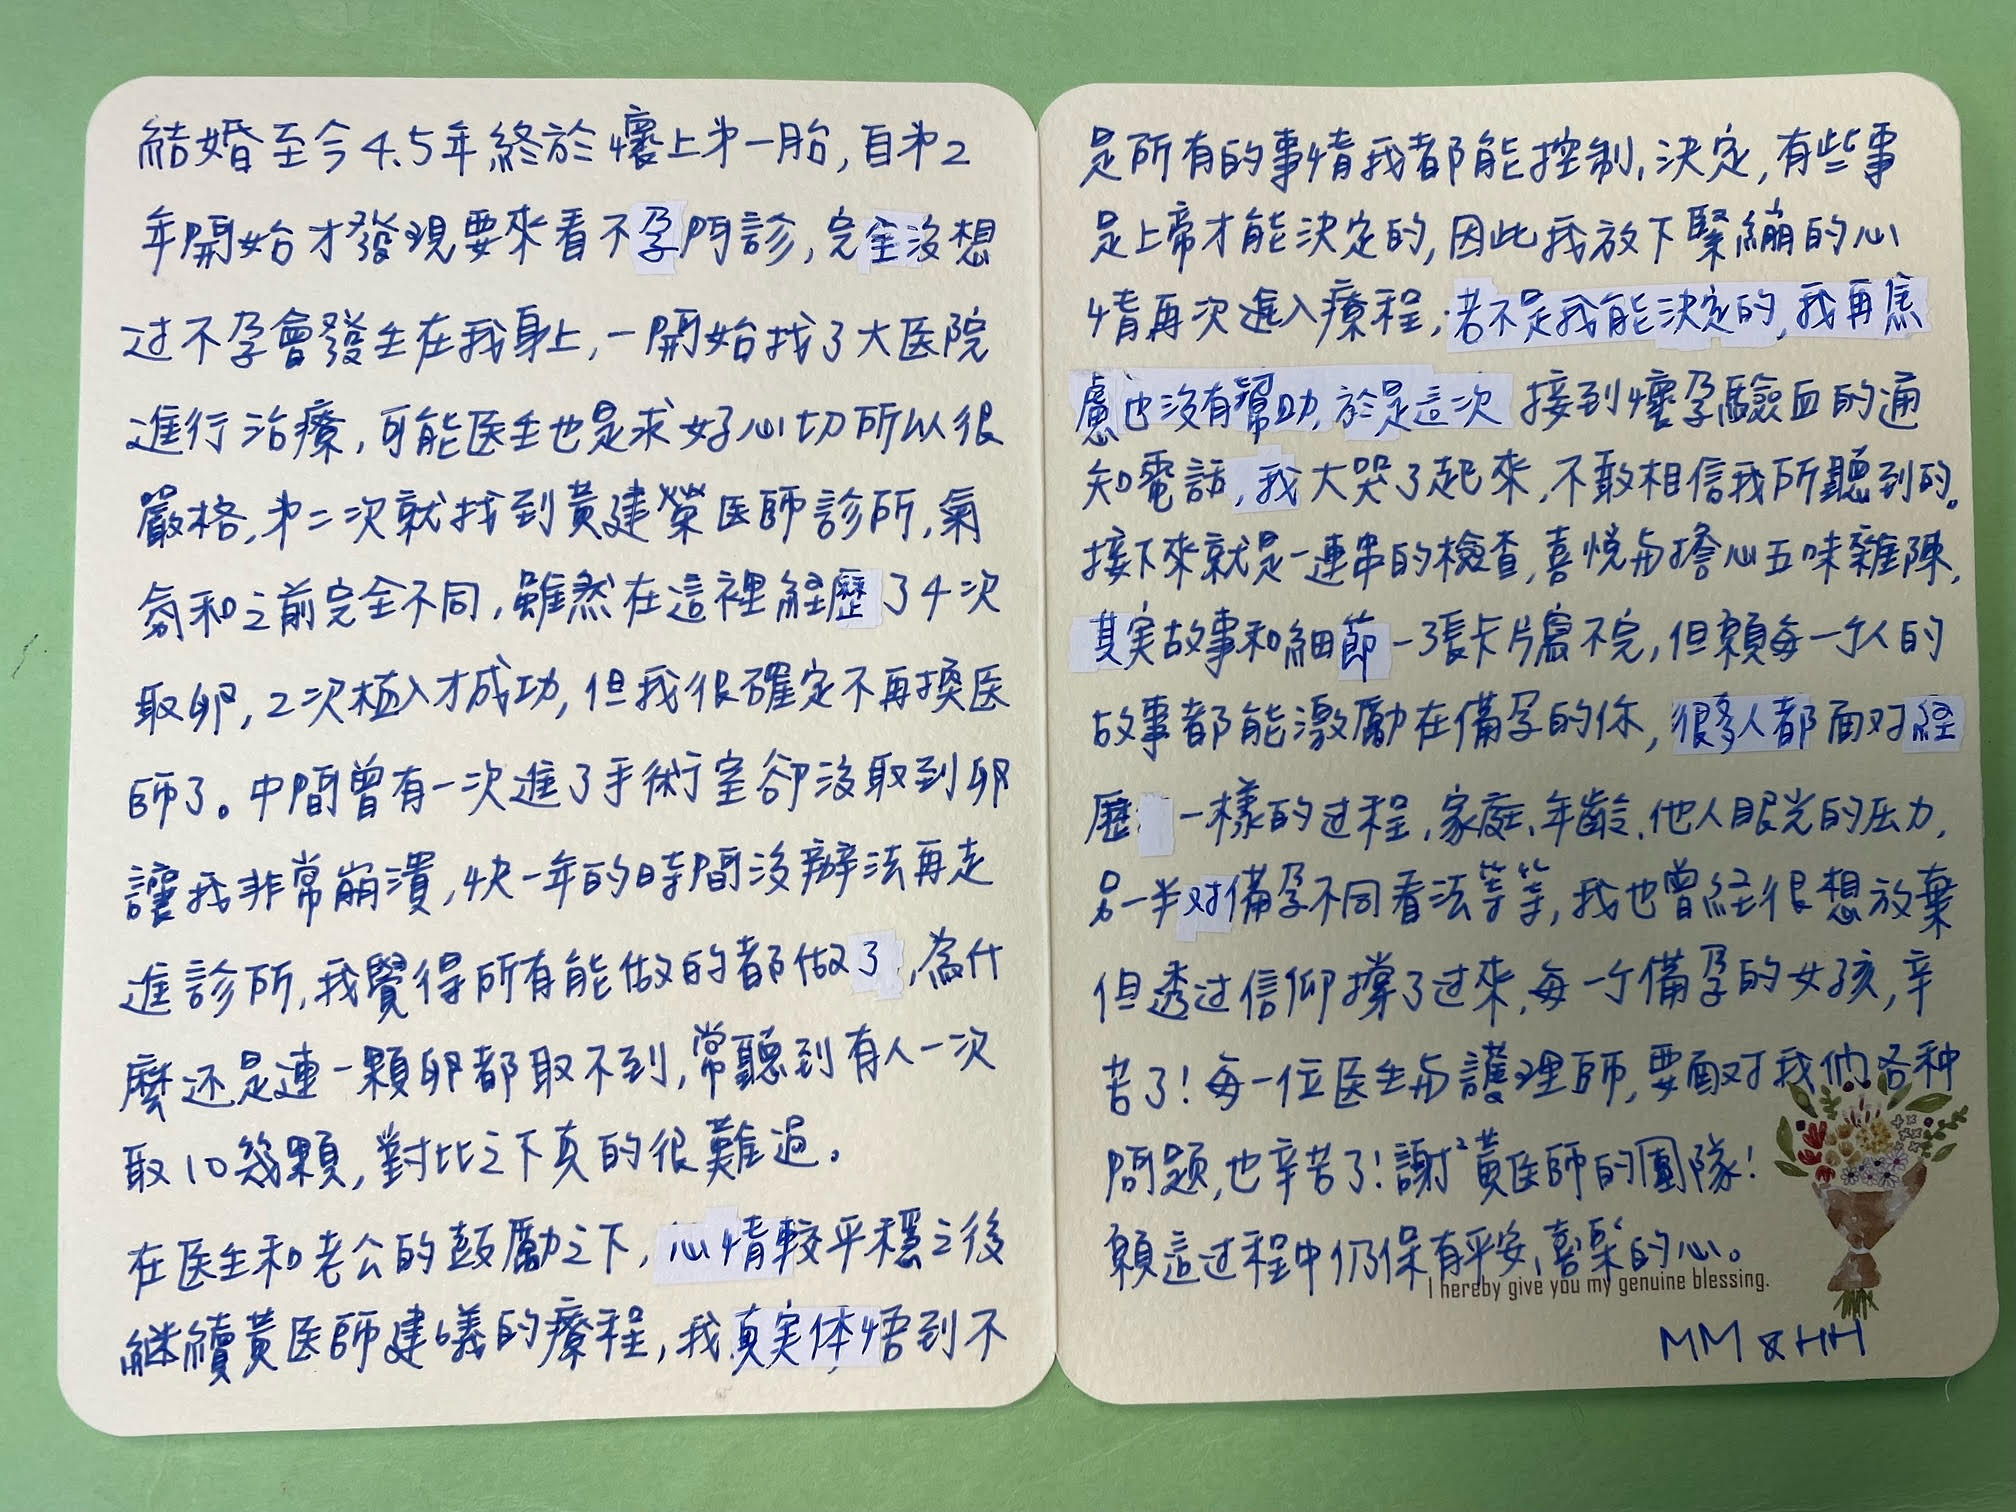 結婚至今4.5年終於懷上第一胎,自第2
年開始才發現要來看不孕門診,完全沒想
过不孕會發生在我身上,一開始找了大医院
進行治療,可能医生也是求好心切所以很
嚴格,第二次就找到黃建榮医師診所,氣
氛和之前完全不同,雖然在這裡経歷了4次
取卵,2次植入才成功,但我很確定不再換医
師了。中間曾有一次進了手術室卻沒取到卵
讓我非常崩潰,快一年的時間沒辦法再走
進診所,我覺得所有能做的都做了,為什
麼还是連一顆卵都取不到,常聽到有人一次
取10幾顆,對比之下真的很難過。
在医生和老公的鼓勵之下,心情較平穩之後
継續黃医師建議的療程,我真实体悟到不
是所有的事情我都能控制、決定,有些事
是上帝才能決定的,因此我放下緊繃的心
情再次進入療程,若不是我能決定的,我再焦
慮也沒有幫助,於是這次接到懷孕驗血的通
知電話,我大哭了起來,不敢相信我所聽到的。
接下來就是一連串的檢查,喜悅与擔心五味雜陳,
其实故事和細節一張卡片寫不完,但願每一个人的
故事都能激勵在備孕的你,很多人都面对経
歷一樣的过程,家庭、年齡、他人眼光的压力,
另一半对備孕不同看法等等,我也曾経很想放棄
但透过信仰撐了过來,每一个備孕的女孩,辛
苦了!每一位医生与護理師,要面对我們各种
問題,也辛苦了!謝²黃医師的團隊!
願這过程中仍保有平安、喜樂的心。
I hereby give you my genuine blessing.
MM & HH